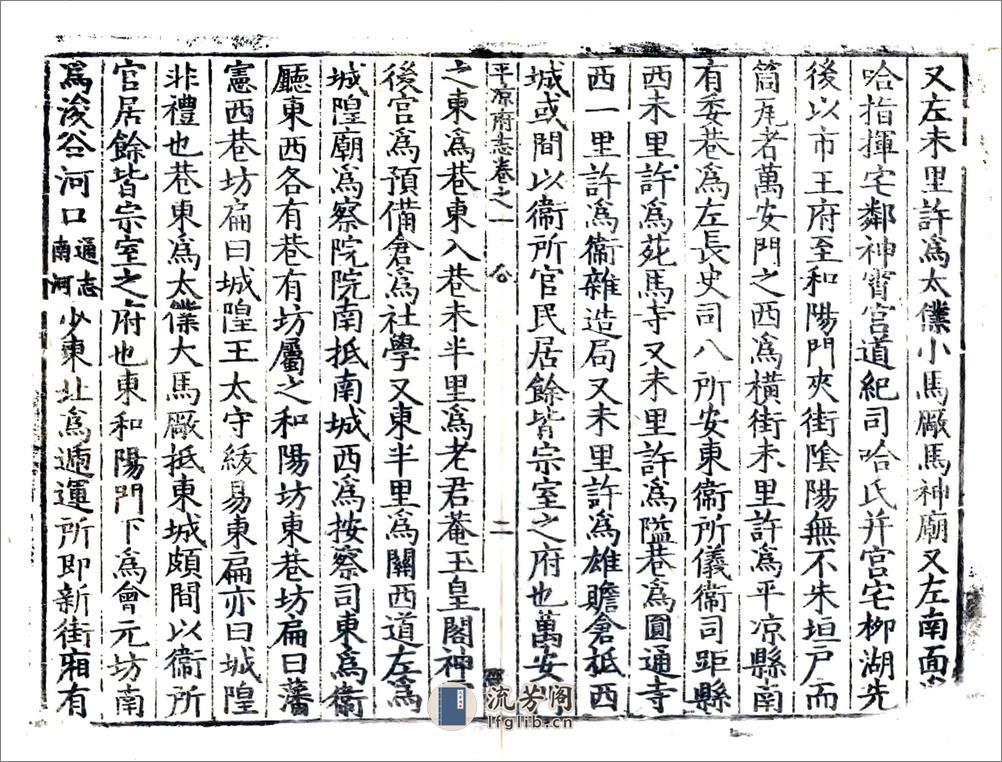 又左未里許爲太僕小馬厰馬神廟又左南面
哈指揮宅鄰神霄宮道紀司哈氏并宫宅柳湖先
後以市王府至和陽門夾街陰陽無不朱垣戸而
筒瓦者萬安門之西爲橫街未里許爲平凉縣南
有委巷爲左長史司八所安東衞所儀衞司距縣
西未里許爲苑馬寺又未里許爲隘巷爲圓通寺
西一里許爲衞雜造局又未里許爲雄贍倉抵西
城或間以衞所官民居餘皆宗室之府也萬安
平凉府志卷之一 二
之東爲巷東入巷未半里爲老君菴玉皇閣神
後宫爲預備倉爲社學又東半里爲關西道左爲
城隍廟爲察院院南抵南城西爲按察司東爲衞
廳東西各有巷有坊屬之和陽坊東巷坊扁曰藩
憲西巷坊扁曰城隍王太守綾易東扁亦曰城隍
非禮也巷東爲太僕大馬厰抵東城頗間以衞所
官居餘皆宗室之府也東和陽門下爲會元坊南
爲浚谷河口通志南河少東北爲遞運所即新街廂有
流芳阁
lfglib.cn